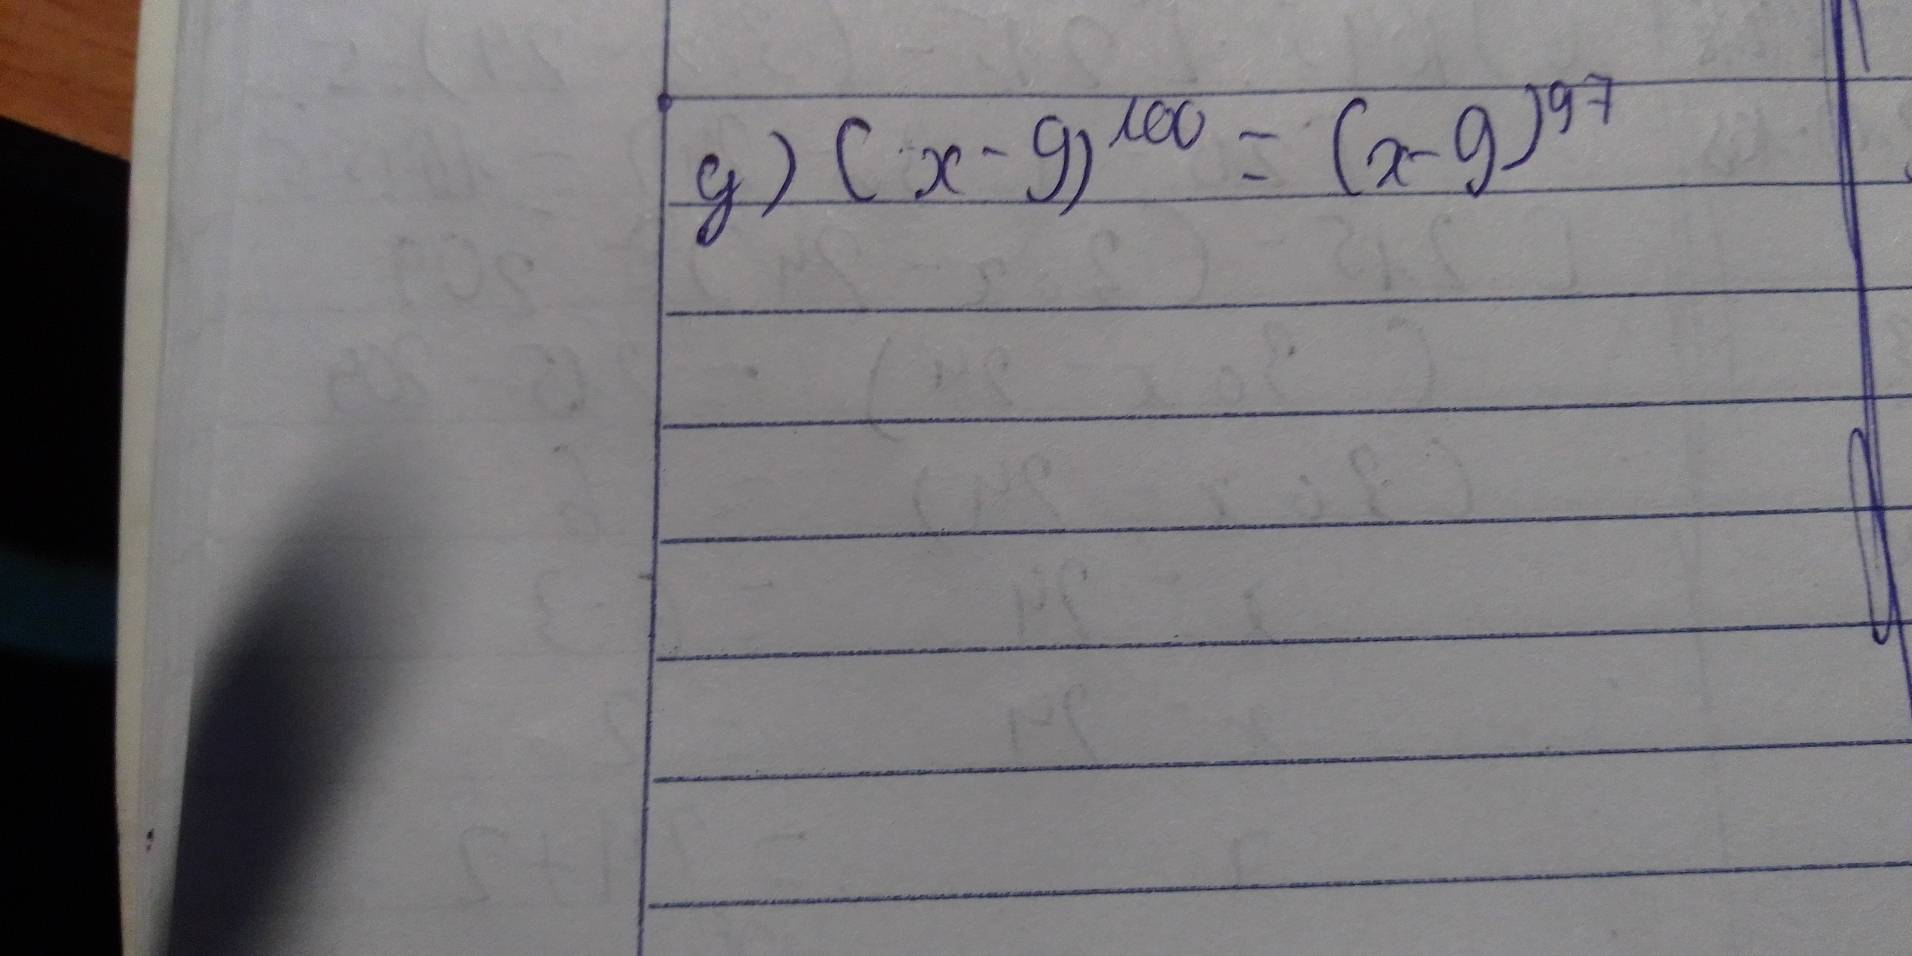 g) (x-9)^100 = (x-9)^97